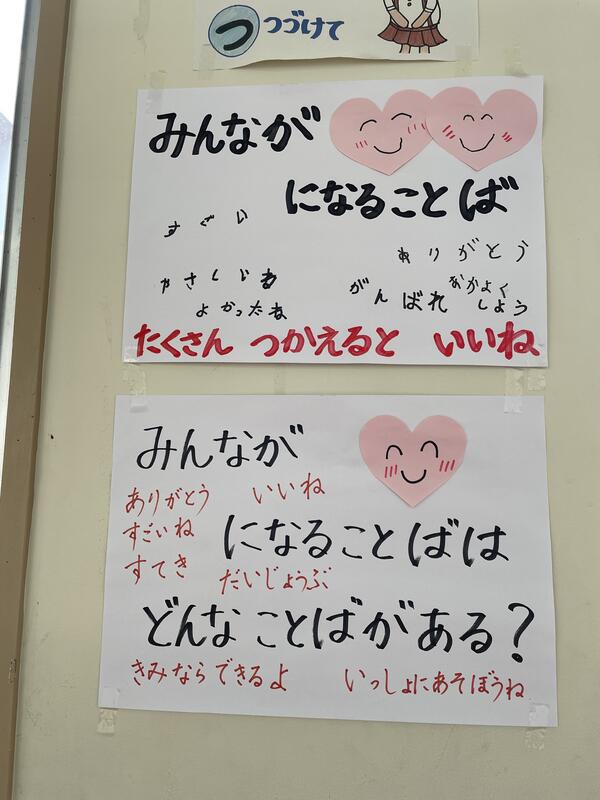 つ つづけて
みんなが
になることば
すごい
ありがとう
やさしいね
がんばれ
なかよく
しよう
よかったね
たくさん つかえると いいね
みんなが
ありがとう いいね
すごいね
になることばは
すてき
だいじょうぶ
どんなことばがある？
きみならできるよ いっしょにあそぼうね